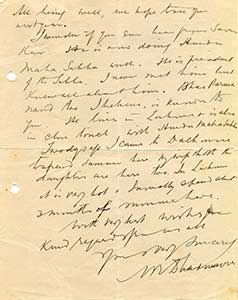 All being well, we hope to see you
next year.
I wonder if you ever hear from Savar
Kar. He is now doing Hindu
Maha Sabha work. He is president
of the Sabha. I never met him but
know all about him. Bhai Parma
nand the I believe, is known to
you. He lives in Lahore & is also
in close touch with Hindu Mahasabha
Two days ago I came to Dalhousie
to spend summer here. My wife & both the
daughters are here too. In Lahore
it is very hot & I usually spend about
2 months of summer here.
With very best wishes for
Kind regards from us all
Yours very sincerely